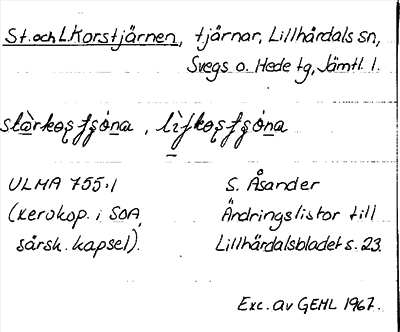 St. och L. Korstjärnen, tjärnar, Lillhärdals sn,
Svegs o. Hede tg, Jämtl. l.
ULMA 755:1
S. Åsander
(xerokop. i SOA,
Ändringslistor till
särsk. kapsel).
Lillhärdalsbladet s. 23.
Exc. av GEHL 1967.